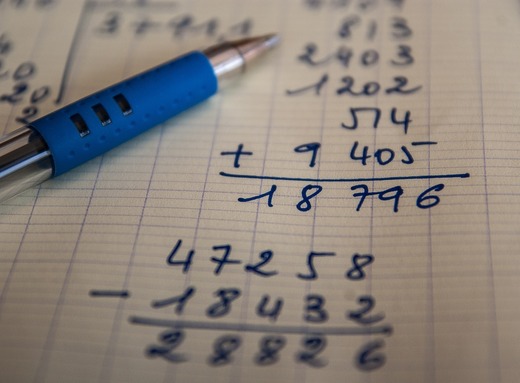 3+911
813
2403
1202
514
+ 9 405
18 796
47258
- 18432
28826
20
20
2